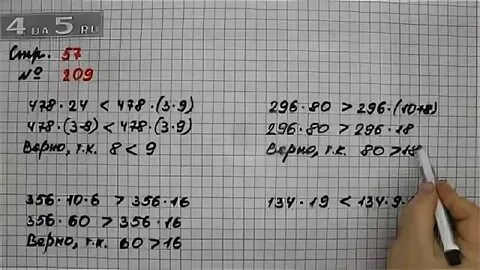 4 DA 5.RU
Стр. 57
№ 209
478·24 < 478·(3·9)
478·(3·8) < 478·(3·9)
Верно, т.к. 8 < 9
296·80 > 296·(10+8)
296·80 > 296·18
Верно, т.к. 80 > 18
356·10·6 > 356·16
356·60 > 356·16
Верно, т.к. 60 > 16
134·19 < 134·9·